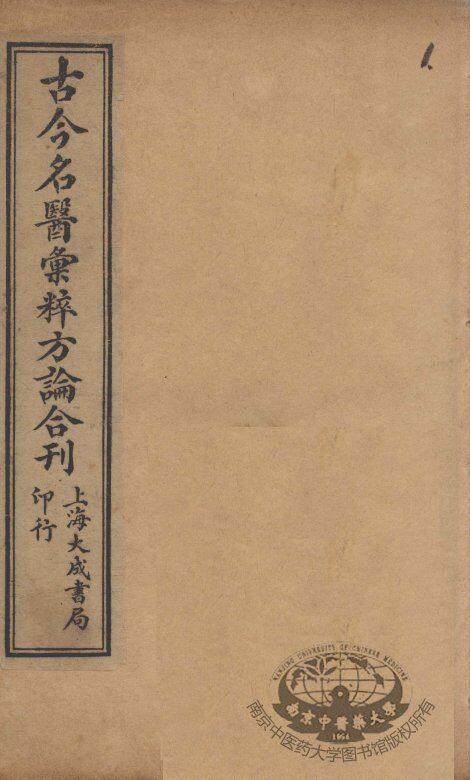 古今名醫彙粹方論合刊
上海大成書局
印行
1
NANJING UNIVERSITY OF CHINESE MEDICINE
南京中醫藥大學
1954
南京中医药大学图书馆版权所有